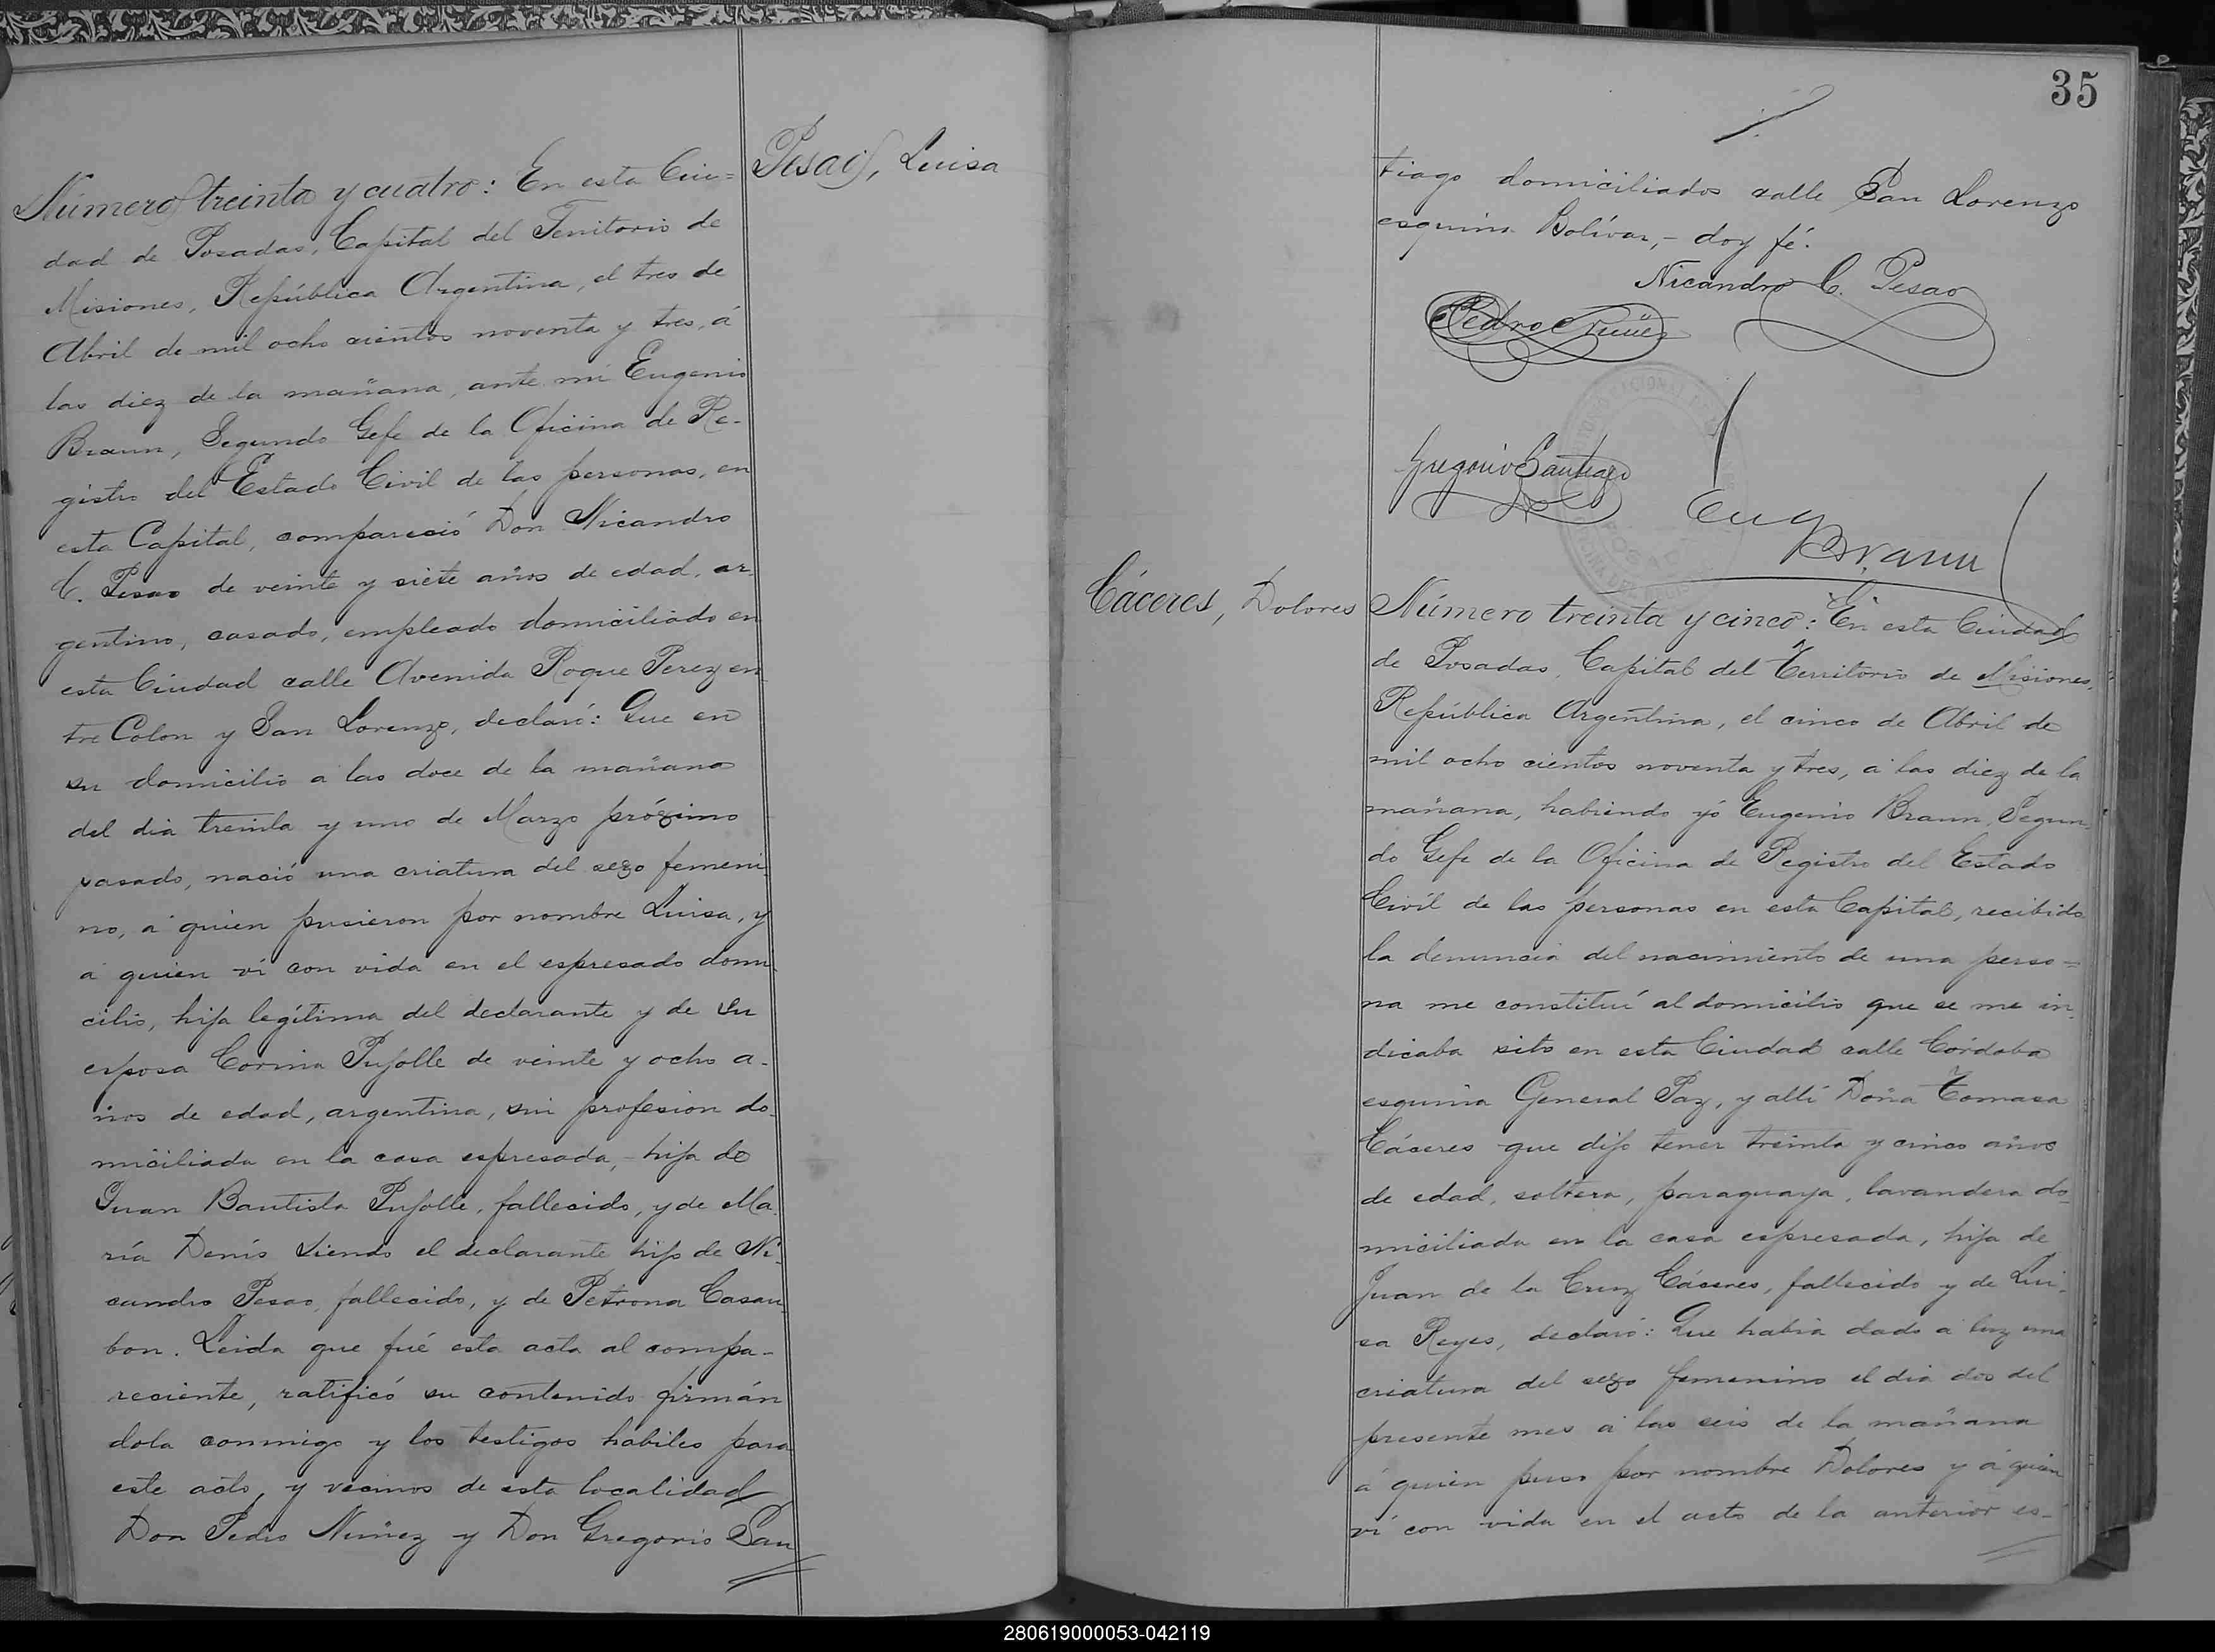 Pesao, Luisa
Número treinta y cuatro: En esta Ciu=
dad de Posadas, Capital del Territorio de
Misiones, República Argentina, el tres de
Abril de mil ocho cientos noventa y tres, á
las diez de la mañana, ante mi Eugenio
Braun, Segundo Gefe de la Oficina de Re-
gistro del Estado Civil de las personas, en
esta Capital, compareció Don Nicandro
C. Pesao de veinte y siete años de edad, ar-
gentino, casado, empleado domiciliado en
esta Ciudad calle Avenida Roque Perez en
tre Colon y San Lorenzo, declaró: Que en
su domicilio a las doce de la mañana
del dia treinta y uno de Marzo próximo
pasado, nació una criatura del sexo femeni
no, á quien pusieron por nombre Luisa, y
á quien ví con vida en el espresado domi
cilio, hija legítima del declarante y de su
esposa Corina Pujolle de veinte y ocho a-
ños de edad, argentina, sin profesion do-
miciliada en la casa espresada, - hija de
Juan Bautista Pujolle, fallecido, y de Ma-
ría Denís siendo el declarante hijo de Ni-
candro Pesao, fallecido, y de Petrona Casau
bon. Leida que fué esta acta al compa-
reciente, ratificó su contenido firmán
dola conmigo y los testigos hábiles para
este acto, y vecinos de esta localidad
Don Pedro Nuñez y Don Gregorio San
35
tiago domiciliados calle San Lorenzo
esquina Bolívar, - doy fé.
Nicandro C. Pesao
Pedro Nuñez
Gregorio Santiago
Eug Braun
Cáceres, Dolores
Número treinta y cinco: En esta Ciudad
de Posadas, Capital del Territorio de Misiones,
República Argentina, el cinco de Abril de
mil ocho cientos noventa y tres, á las diez de la
mañana, habiendo yó Eugenio Braun, Segun-
do Gefe de la Oficina de Registro del Estado
Civíl de las personas en esta Capital, recibido
la denuncia del nacimiento de una perso=
na me constituí al domicilio que se me in-
dicaba sito en esta Ciudad calle Córdoba
esquina General Paz, y allí Doña Tomasa
Cáceres que dijo tener treinta y cinco años
de edad, soltera, paraguaya, lavandera do-
miciliada en la casa espresada, hija de
Juan de la Cruz Cáceres, fallecido y de Lui-
sa Reyes, declaró: Que habia dado á luz una
criatura del sexo femenino el dia dos del
presente mes á las seis de la mañana
á quien puso por nombre Dolores y á quien
ví con vida en el acto de la anterior es-
280619000053-042119